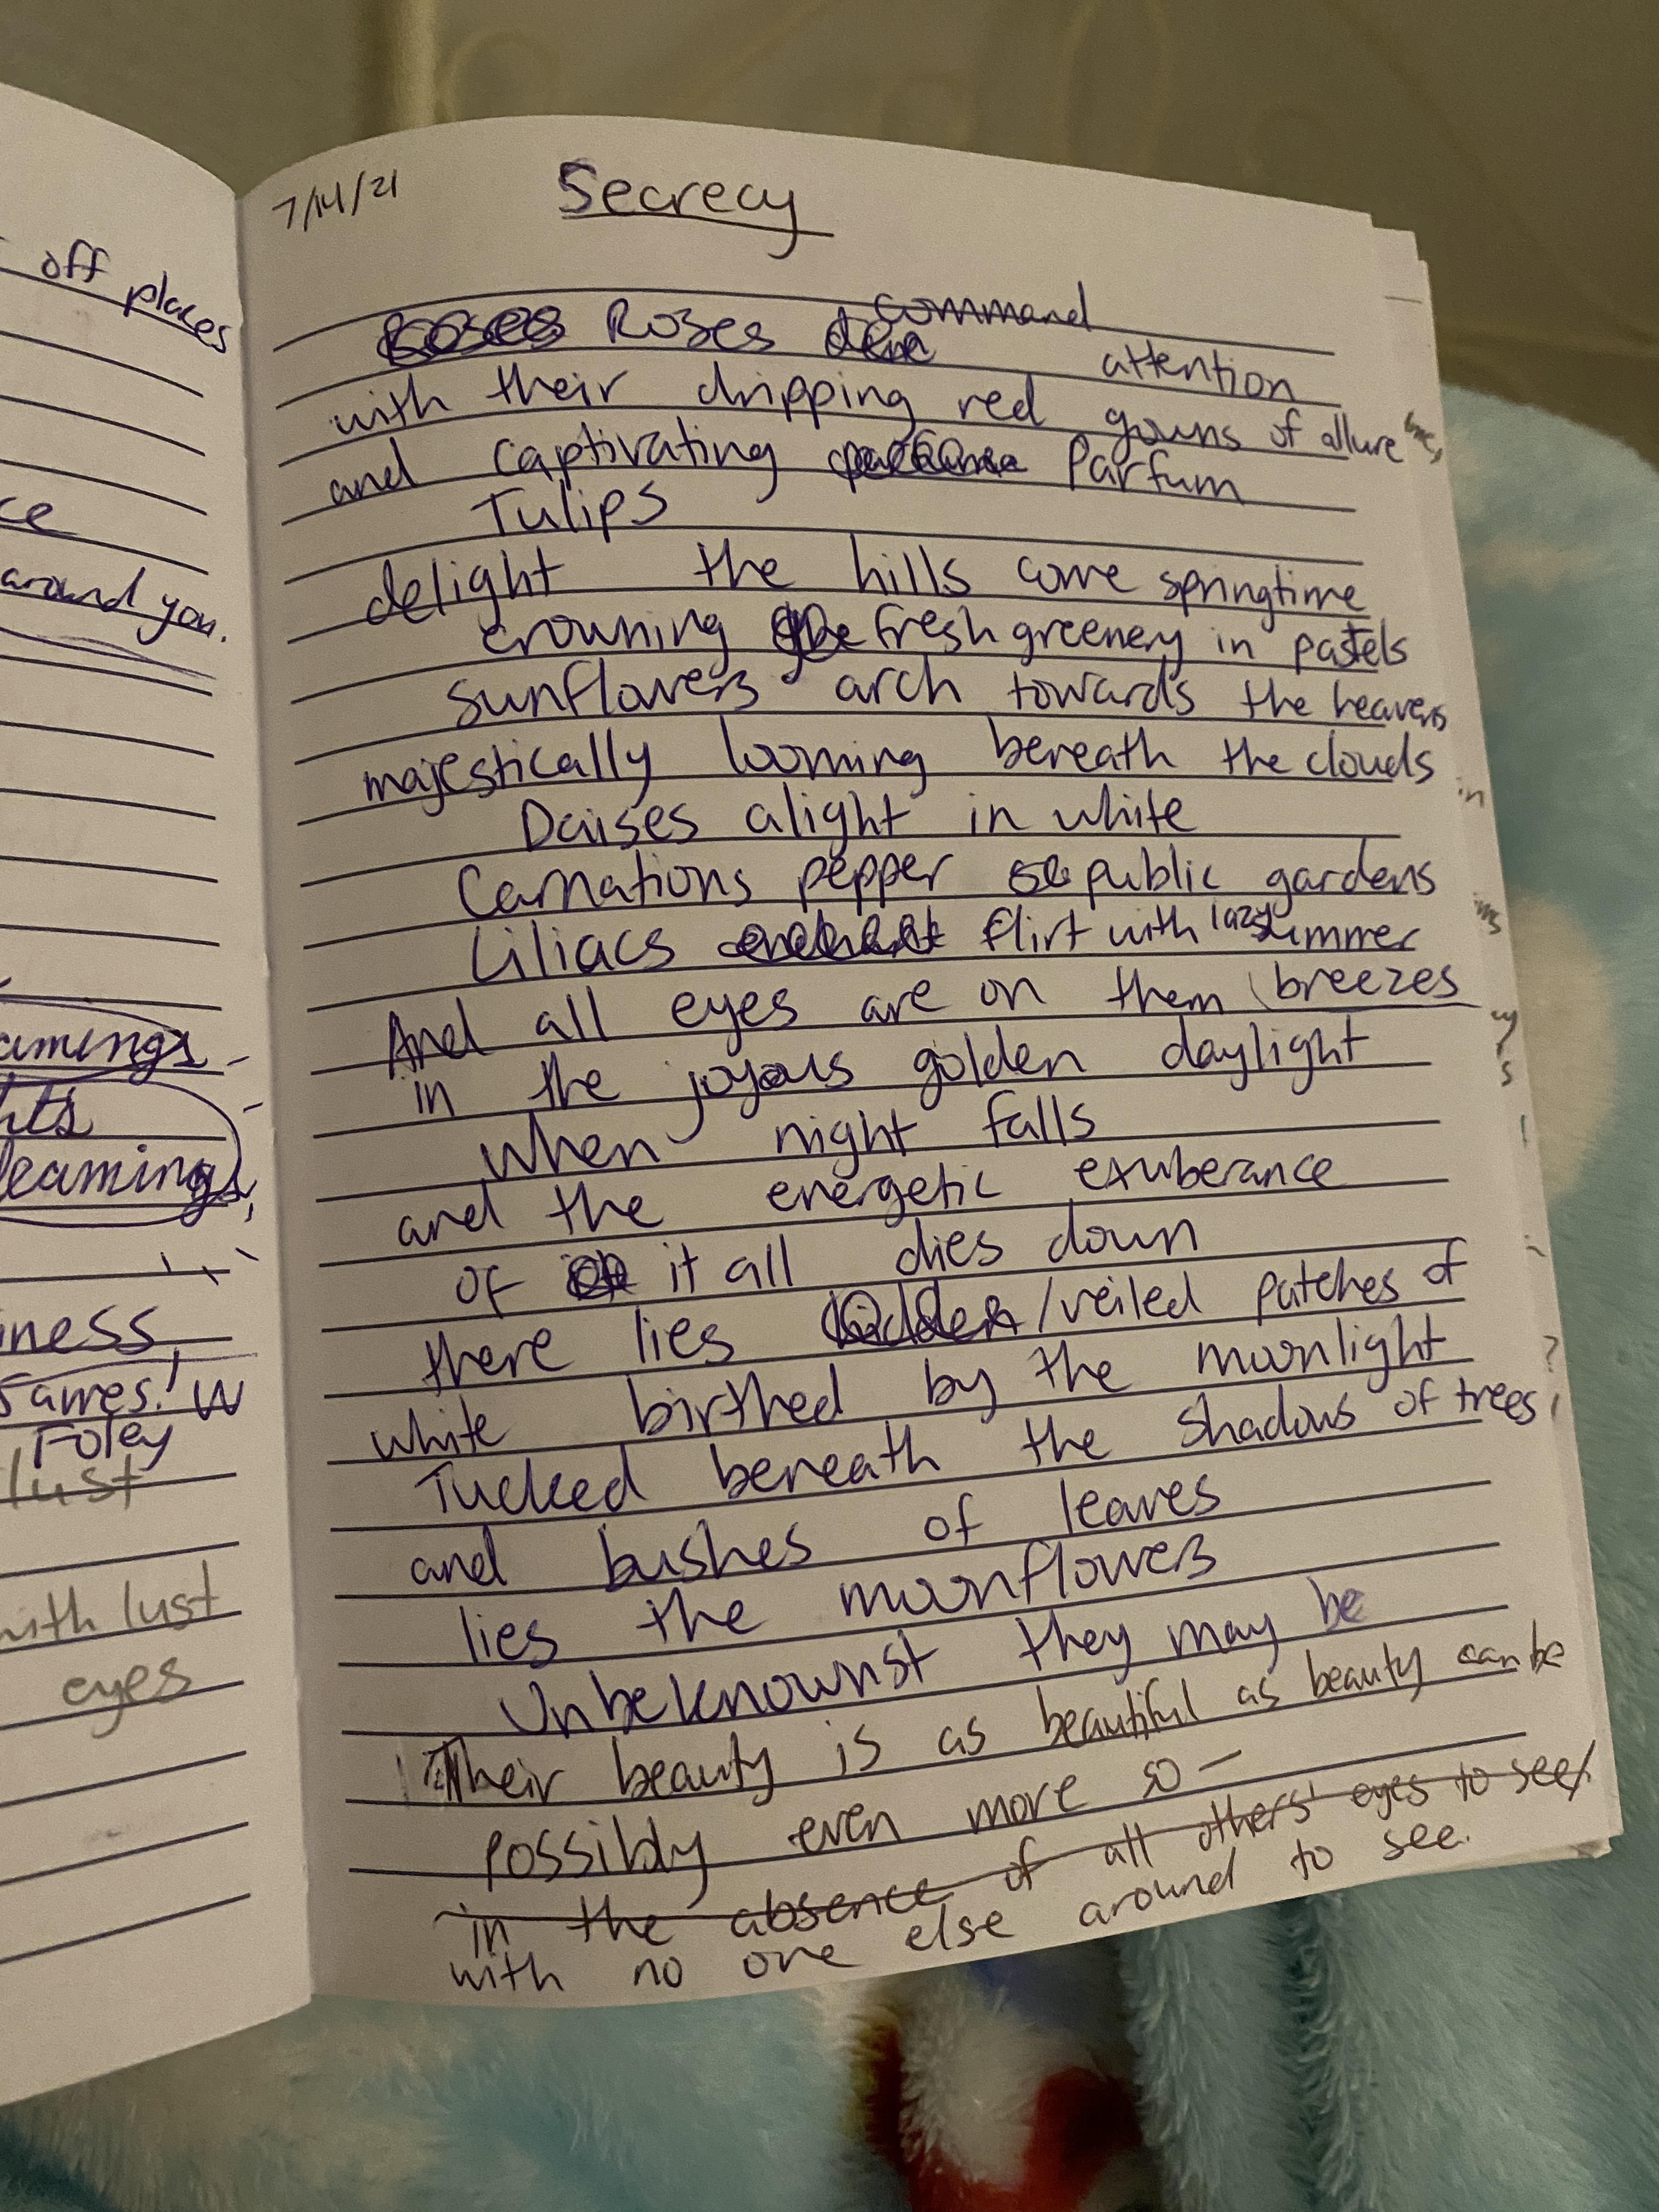 off places
ce
around you.
amings
hts
leamings
iness,
James! W
Foley
lust
with lust
eyes
7/14/21
Secrecy
Roses command attention
with their dripping red gowns of allure
and captivating Parfum
Tulips
delight the hills come springtime
crowning fresh greenery in pastels
Sunflowers arch towards the heavens
majestically looming beneath the clouds
Daises alight in white
Carnations pepper public gardens
Liliacs flirt with lazy summer
breezes
And all eyes are on them
in the joyous golden daylight
when night falls
and the energetic exuberance
of it all dies down
there lies hidden/veiled patches of
white birthed by the moonlight
Tucked beneath the shadows of trees
and bushes of leaves
lies the moonflowers
Unbeknownst they may be
Their beauty is as beautiful as beauty can be
possibly even more so—
in the absence of all others' eyes to see
with no one else around to see.